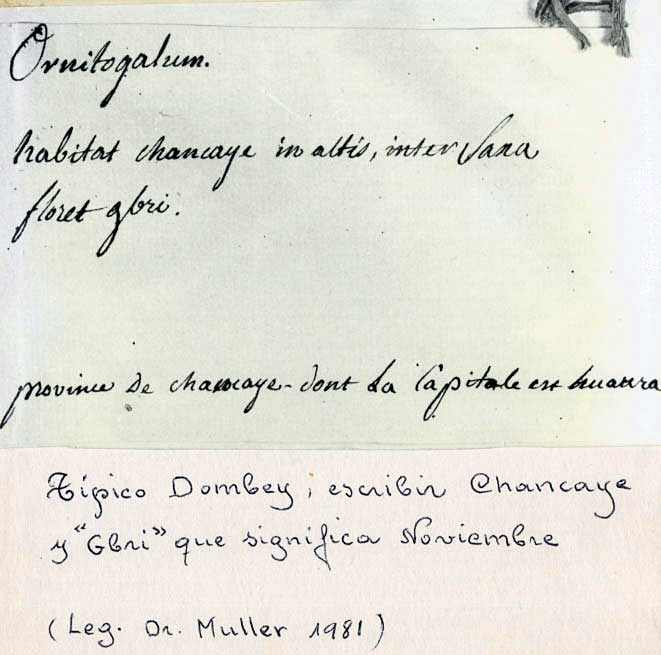 Ornitogalum.
habitat chancaye in altis, inter Saxa
floret gbri.
province de chancaye - dont La Capitale est huaura
Típico Dombey, escribir Chancaye
y "Gbri" que significa Noviembre
(Leg. Dr. Muller 1981)